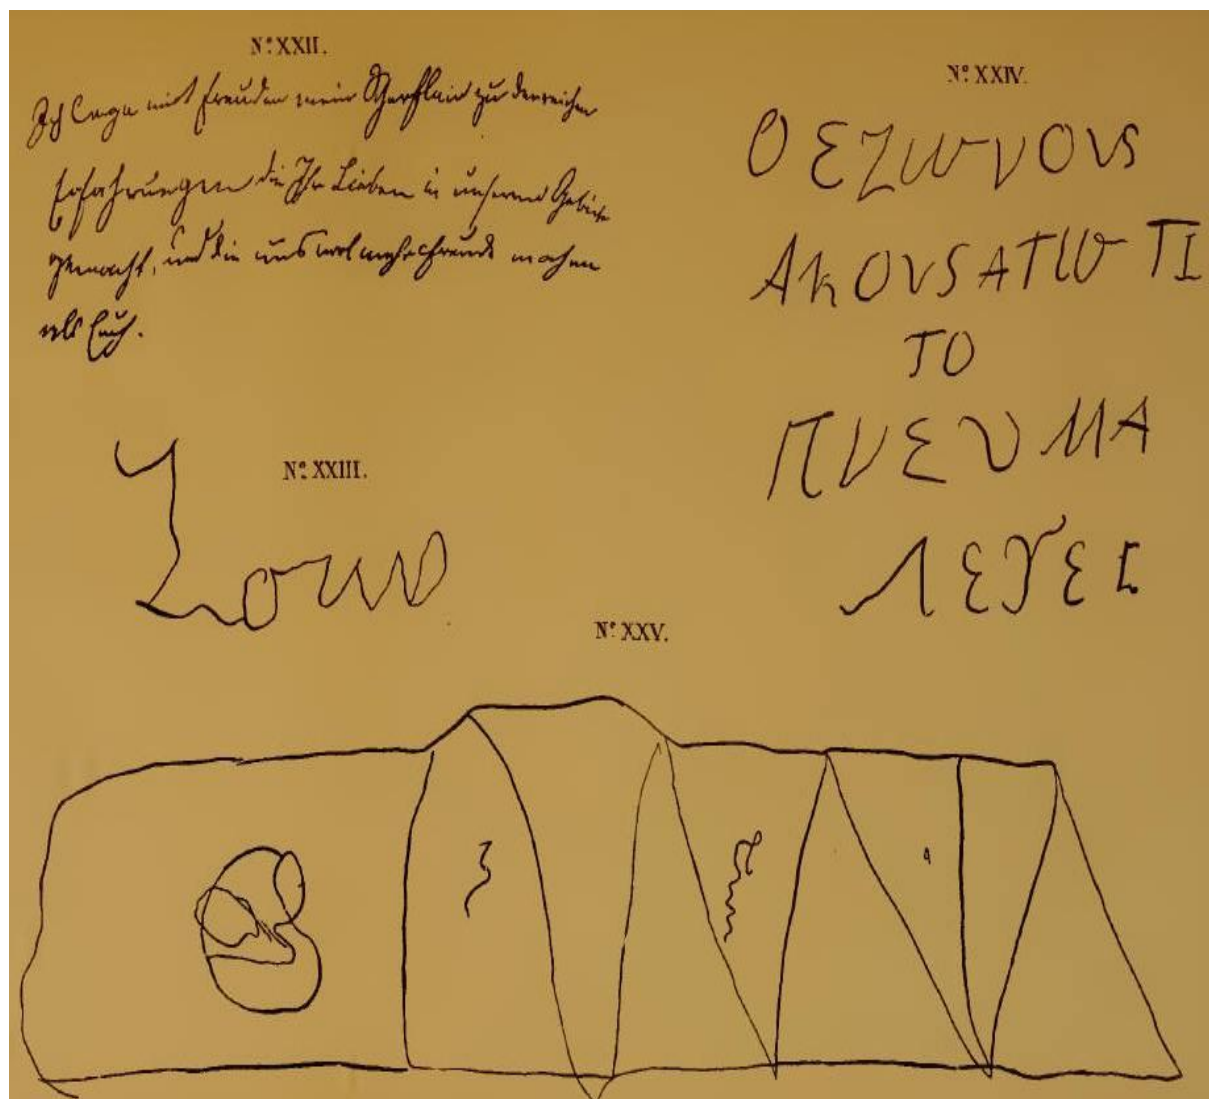 Nº XXII.
Ich lege mit Freuden mein Scherflein zu den reichen
Erfahrungen die Ihr Lieben in unserm Gebiete
gemacht, und die uns wol mehr Freude machen
als Euch.
Nº XXIII.
Nº XXIV.
Ο ΕΖωνΟυS
ΑκΟυSΑΤω ΤΙ
ΤΟ
ΠνΕυΜΑ
ΛΕγΕΙ
Nº XXV.